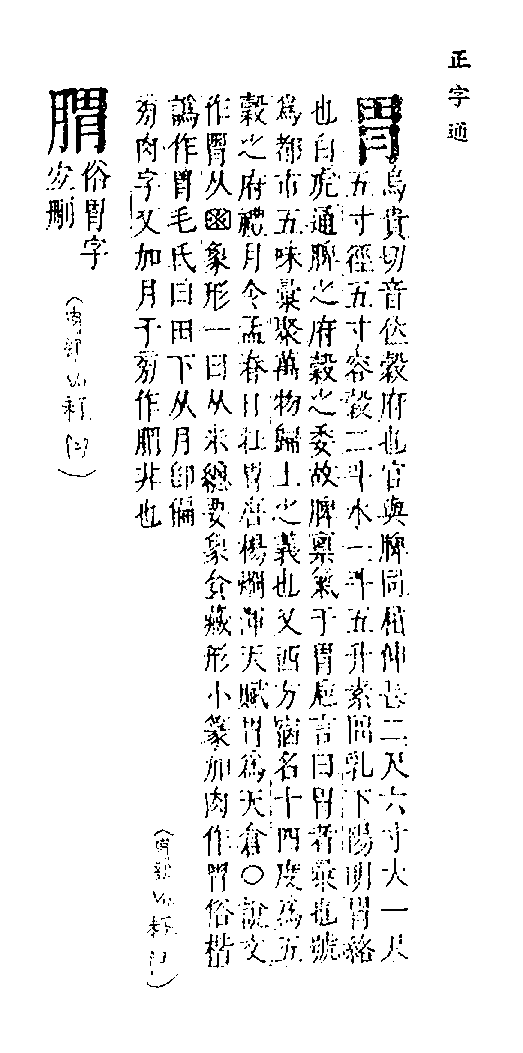 正字通
胃
烏貴切音位穀府也官與脾同紆伸長二尺六寸大一尺
五寸徑五寸容穀二斗水一斗五升素問乳下陽明胃絡
也白虎通脾之府穀之委故脾稟氣于胃巵言曰胃者彙也號
爲都市五味彙聚萬物歸土之義也又西方宿名十四度爲五
穀之府禮月令孟春日在胃唐楊烱渾天賦胃爲天倉○說文
作𦞅从象形一曰从米總要象食藏形小篆加肉作胃俗楷
譌作胃毛氏曰田下从月卽偏
旁肉字又加月于旁作腪非也
腪
俗胃字
宜刪